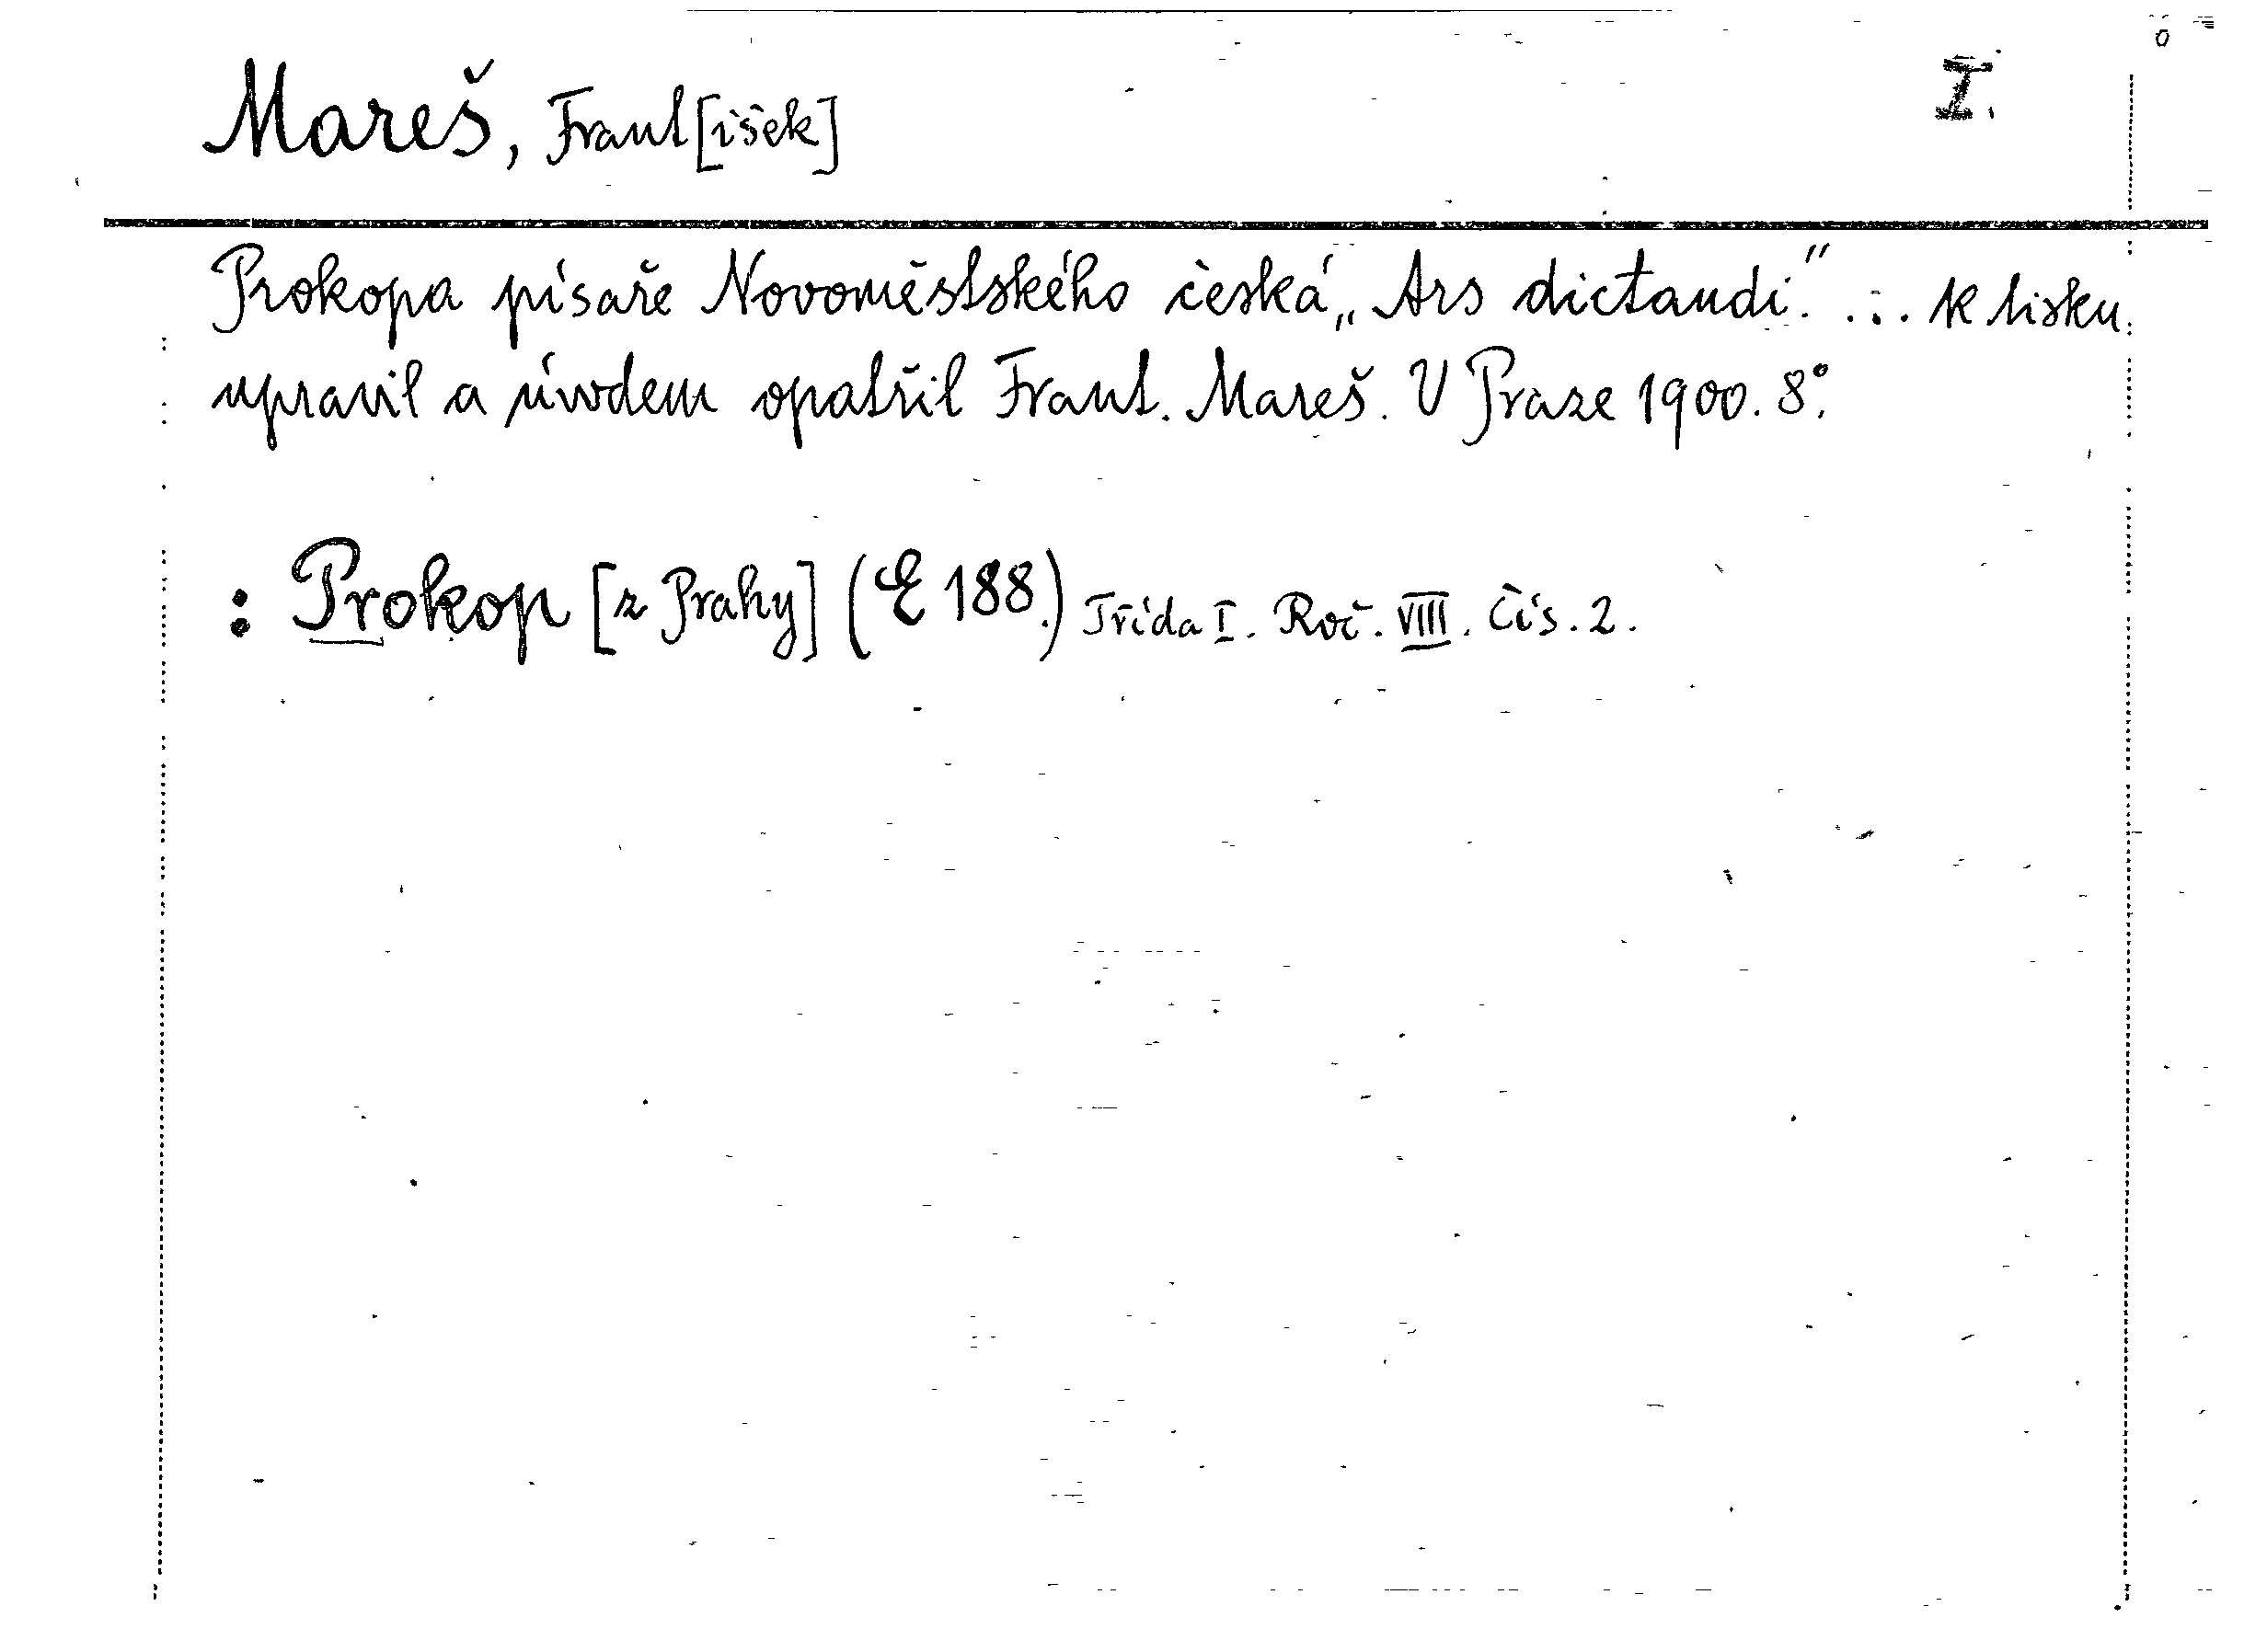 Mareš, Frant[išek] I.
Prokopa písaře Novoměstského česká „Ars dictandi." ... K tisku
upravil a úvodem opatřil Frant. Mareš. V Praze 1900. 8°.
: Prokop [z Prahy] (E 188.) Třída I. Roč. VIII. Čís. 2.